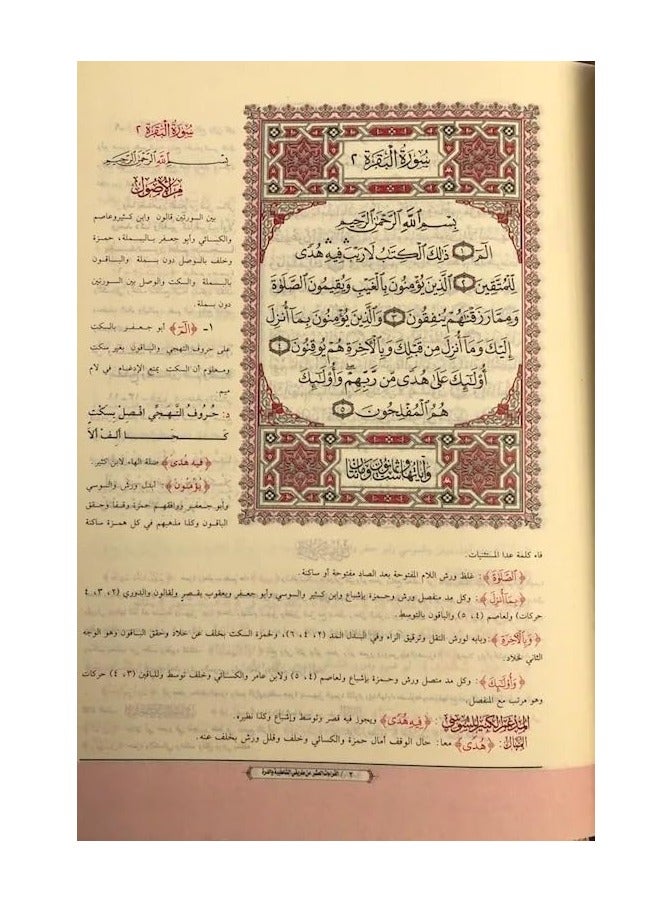 سُورَةُ البَقَرَة ٢
بِسْمِ اللَّهِ الرَّحْمَٰنِ الرَّحِيمِ
الٓمٓ ۝١ ذَٰلِكَ ٱلْكِتَٰبُ لَا رَيْبَ ۛ فِيهِ ۛ هُدًى
لِّلْمُتَّقِينَ ۝٢ ٱلَّذِينَ يُؤْمِنُونَ بِٱلْغَيْبِ وَيُقِيمُونَ ٱلصَّلَوٰةَ
وَمِمَّا رَزَقْنَٰهُمْ يُنفِقُونَ ۝٣ وَٱلَّذِينَ يُؤْمِنُونَ بِمَآ أُنزِلَ
إِلَيْكَ وَمَآ أُنزِلَ مِن قَبْلِكَ وَبِٱلْءَاخِرَةِ هُمْ يُوقِنُونَ ۝٤
أُو۟لَٰٓئِكَ عَلَىٰ هُدًى مِّن رَّبِّهِمْ ۖ وَأُو۟لَٰٓئِكَ
هُمُ ٱلْمُفْلِحُونَ ۝٥
وآياتها ست وثمانون ومائتان
سُورَةُ البَقَرَة ٢
بِسْمِ اللَّهِ الرَّحْمَٰنِ الرَّحِيمِ
مِنَ الأُصُول
بين السورتين قالون وابن كثير وعاصم
والكسائي وأبو جعفر بالبسملة، حمزة
وخلف بالوصل دون بسملة والباقون
بالبسملة والسكت والوصل بين السورتين
دون بسملة.
١- ﴿الٓمٓ﴾ أبو جعفر بالسكت
على حروف التهجي والباقون بغير سكت
ومعلوم أن السكت يمنع الإدغام في لام
ميم
د: حُرُوفُ التَّهَجِّي افْصِلْ بِسَكْتٍ
كَحَا أَلِفْ أَلَا
﴿فِيهِ هُدًى﴾ صلة الهاء لابن كثير.
﴿يُؤْمِنُونَ﴾ أبدل ورش والسوسي
وأبو جعفر ووافقهم حمزة وقفا وحقق
الباقون وكذا مذهبهم في كل همزة ساكنة
فاء كلمة عدا المستثنيات.
﴿ٱلصَّلَوٰةَ﴾: غلظ ورش اللام المفتوحة بعد الصاد مفتوحة أو ساكنة.
﴿بِمَآ أُنزِلَ﴾: وكل مد منفصل ورش وحمزة بإشباع وابن كثير والسوسي وأبو جعفر ويعقوب بقصر ولقالون والدوري (٢، ٣، ٤
حركات) ولعاصم (٤، ٥) والباقون بالتوسط.
﴿وَبِٱلْءَاخِرَةِ﴾: وبابه لورش النقل وترقيق الراء وفي البدل المد (٢، ٤، ٦)، ولحمزة السكت بخلف عن خلاد وحقق الباقون وهو الوجه
الثاني لخلاد.
﴿وَأُو۟لَٰٓئِكَ﴾: وكل مد متصل ورش وحمزة بإشباع ولعاصم (٤، ٥) ولابن عامر والكسائي وخلف توسط وللباقين (٣، ٤) حركات
وهو مرتب مع المنفصل.
المدغم الكبير للسوسي: ﴿فِيهِ هُدًى﴾ ويجوز فيه قصر وتوسط وإشباع وكذا نظيره.
الممال: ﴿هُدًى﴾ معا: حال الوقف أمال حمزة والكسائي وخلف وقلل ورش بخلف عنه.
٢ / القراءات العشر من طريقي الشاطبية والدرة